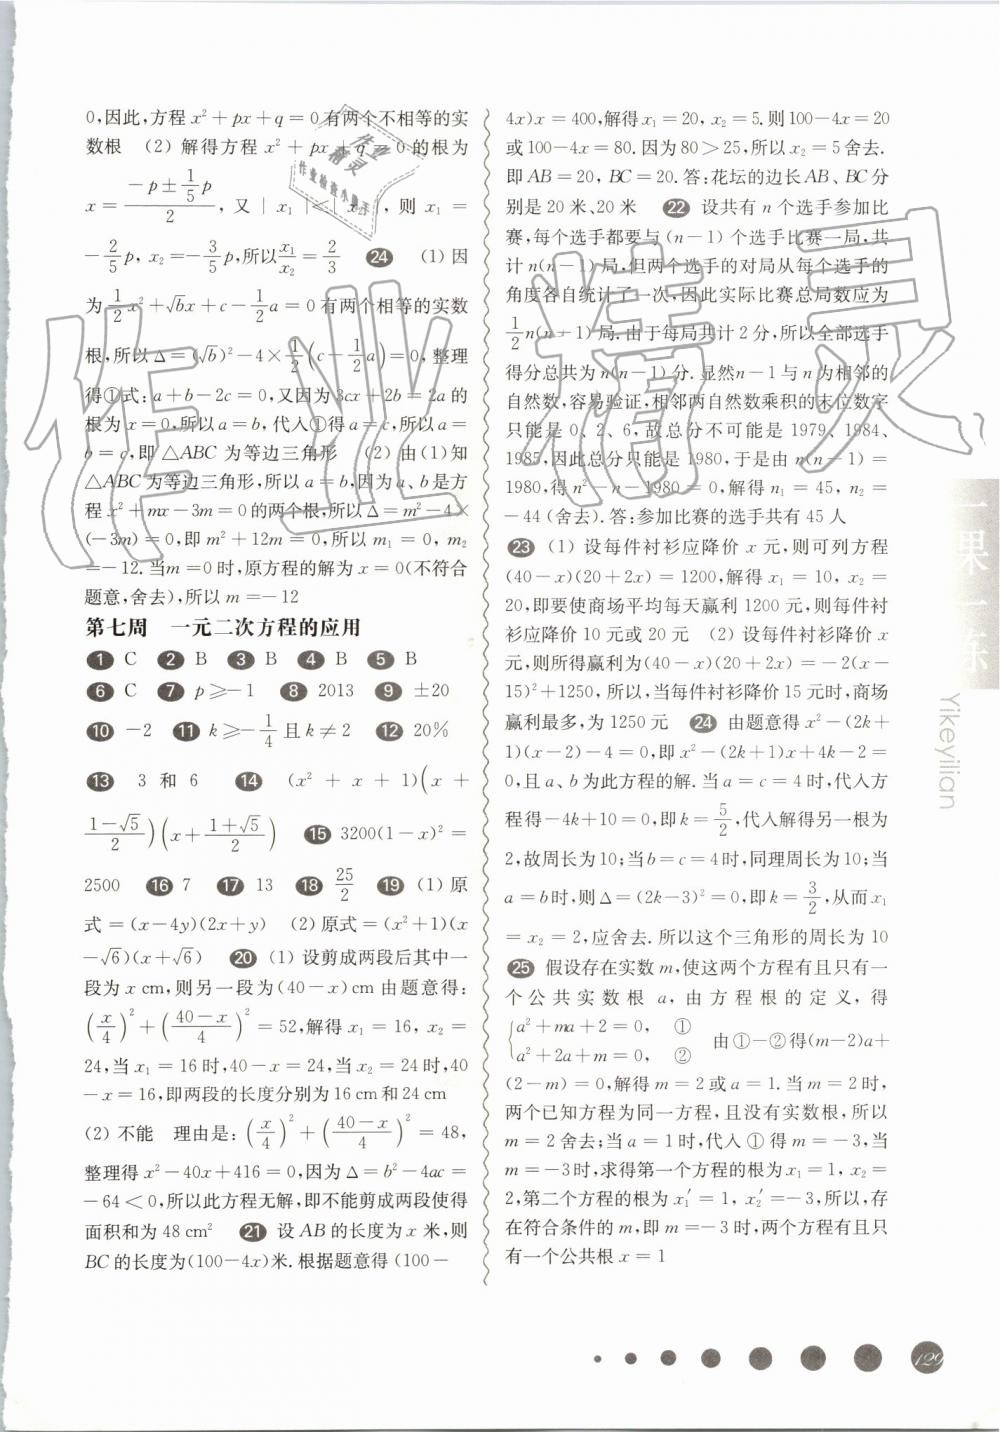 0,因此,方程 x²+px+q=0 有两个不相等的实
数根 (2) 解得方程 x²+px+q=0 的根为
x=(-p±(1/5)p)/2, 又 |x₁|<|x₂|, 则 x₁=
-(2/5)p, x₂=-(3/5)p,所以 x₁/x₂=2/3 24 (1) 因
为 (1/2)x²+√b x+c-(1/2)a=0 有两个相等的实数
根,所以 Δ=(√b)²-4×(1/2)(c-(1/2)a)=0,整理
得①式:a+b-2c=0,又因为 3cx+2b=2a 的
根为 x=0,所以 a=b,代入①得 a=c,所以 a=
b=c,即 △ABC 为等边三角形 (2) 由(1)知
△ABC 为等边三角形,所以 a=b,因为 a、b 是方
程 x²+mx-3m=0 的两个根,所以 Δ=m²-4×
(-3m)=0,即 m²+12m=0,所以 m₁=0, m₂
=-12.当m=0时,原方程的解为 x=0(不符合
题意,舍去),所以 m=-12
第七周 一元二次方程的应用
1 C 2 B 3 B 4 B 5 B
6 C 7 p≥-1 8 2013 9 ±20
10 -2 11 k≥-1/4 且 k≠2 12 20%
13 3 和 6 14 (x²+x+1)(x+
(1-√5)/2)(x+(1+√5)/2) 15 3200(1-x)²=
2500 16 7 17 13 18 25/2 19 (1) 原
式=(x-4y)(2x+y) (2) 原式=(x²+1)(x
-√6)(x+√6) 20 (1) 设剪成两段后其中一
段为 x cm,则另一段为(40-x)cm 由题意得:
(x/4)²+((40-x)/4)²=52,解得 x₁=16, x₂=
24,当 x₁=16 时,40-x=24,当 x₂=24 时,40
-x=16,即两段的长度分别为 16 cm 和 24 cm
(2) 不能 理由是:(x/4)²+((40-x)/4)²=48,
整理得 x²-40x+416=0,因为 Δ=b²-4ac=
-64<0,所以此方程无解,即不能剪成两段使得
面积和为 48 cm² 21 设 AB 的长度为 x 米,则
BC 的长度为(100-4x)米.根据题意得 (100-
4x)x=400,解得 x₁=20, x₂=5.则100-4x=20
或100-4x=80.因为 80>25,所以 x₂=5 舍去.
即 AB=20, BC=20.答:花坛的边长AB、BC分
别是 20 米、20 米 22 设共有 n 个选手参加比
赛,每个选手都要与 (n-1) 个选手比赛一局,共
计 n(n-1) 局,但两个选手的对局从每个选手的
角度各自统计了一次,因此实际比赛总局数应为
(1/2)n(n-1) 局.由于每局共计 2 分,所以全部选手
得分总共为 n(n-1) 分.显然n-1 与 n 为相邻的
自然数,容易验证,相邻两自然数乘积的末位数字
只能是 0、2、6,故总分不可能是 1979、1984、
1985,因此总分只能是 1980,于是由 n(n-1)=
1980,得 n²-n-1980=0,解得 n₁=45, n₂=
-44 (舍去).答:参加比赛的选手共有 45 人
23 (1) 设每件衬衫应降价 x 元,则可列方程
(40-x)(20+2x)=1200,解得 x₁=10, x₂=
20,即要使商场平均每天赢利 1200 元,则每件衬
衫应降价 10 元或 20 元 (2) 设每件衬衫降价 x
元,则所得赢利为(40-x)(20+2x)=-2(x-
15)²+1250,所以,当每件衬衫降价 15 元时,商场
赢利最多,为 1250 元 24 由题意得 x²-(2k+
1)(x-2)-4=0,即 x²-(2k+1)x+4k-2=
0,且 a、b 为此方程的解.当 a=c=4 时,代入方
程得-4k+10=0,即 k=5/2,代入解得另一根为
2,故周长为 10;当 b=c=4 时,同理周长为 10;当
a=b时,则 Δ=(2k-3)²=0,即 k=3/2,从而x₁
=x₂=2,应舍去.所以这个三角形的周长为 10
25 假设存在实数 m,使这两个方程有且只有一
个公共实数根 a, 由方程根的定义, 得
{a²+ma+2=0, ①
a²+2a+m=0, ② 由①-②得(m-2)a+
(2-m)=0,解得 m=2 或 a=1.当 m=2 时,
两个已知方程为同一方程,且没有实数根,所以
m=2 舍去;当 a=1 时,代入 ① 得 m=-3,当
m=-3 时,求得第一个方程的根为 x₁=1, x₂=
2,第二个方程的根为 x₁′=1, x₂′=-3,所以,存
在符合条件的 m,即 m=-3 时,两个方程有且只
有一个公共根 x=1
一课一练
Yikeyilian
129
作业精灵
作业
精灵
作业检查小助手